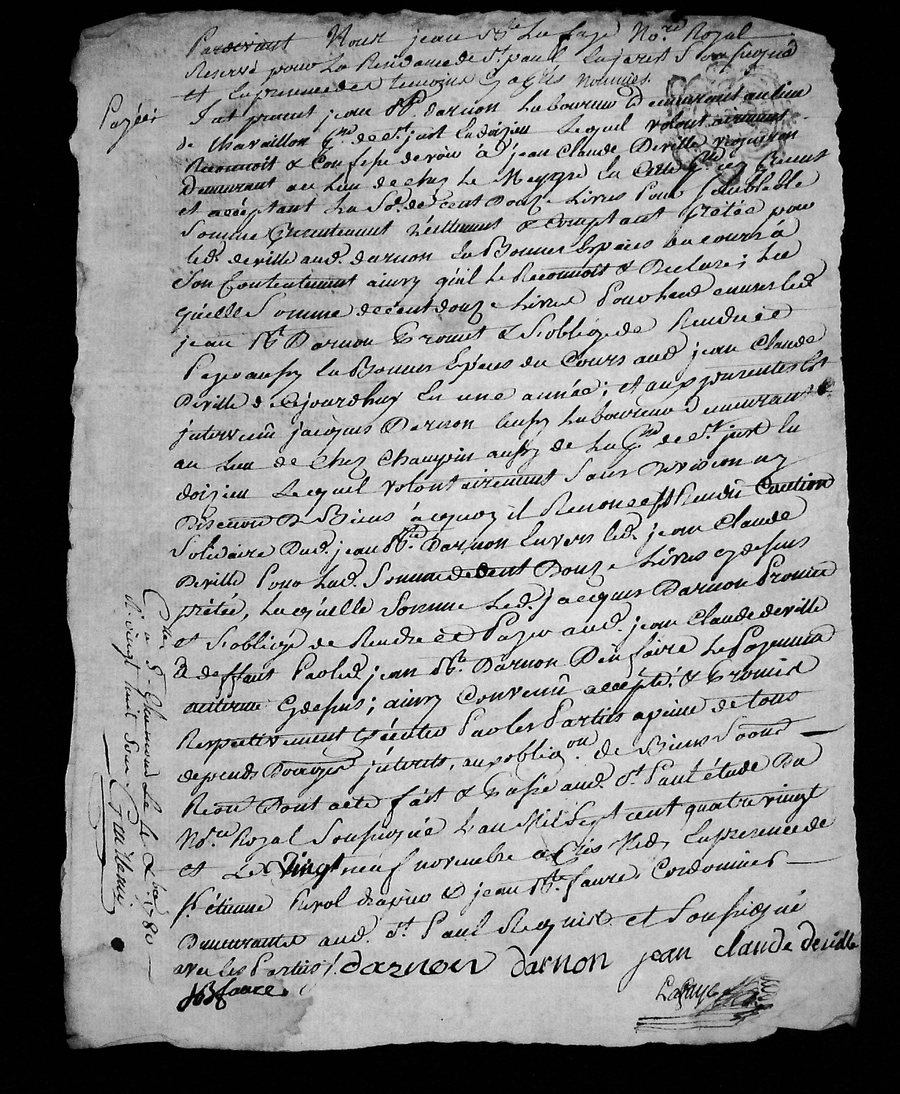 Pardevant Nous jean Bte Lafaye Nore Royal
Reservé pour La Residance de St paul En jarest Soussigné
et En presence des temoins Cy aprés Nommés.
Payées
fut present jean Bte Darnon Laboureur demeurant au lieu
de Chavaillon Psse de St just En doizieu Lequel volontairement
Reconnoit & Confesse devoir à jean Claude Deville
Demeurant au Lieu de chez Le Meygre En Cette Psse icy Present
et acceptant La So. de Cent Douze Livres Pour semblable
Somme Presentement Reellement & Comptant Prétée pour
led. deville aud. darnon En Bonnes Especes du cours à
Son Contentement ainsy qu'il Le Reconnoit & Declare; La
quelle Somme de Cent douze Livres led.
jean Bte Darnon Promet & S'oblige de Rendre et
Payer aussy En Bonnes Especes du Cours aud. jean Claude
Deville d'aujourdhuy En une année; et aux presentes Est
intervenû jacques Darnon aussy Laboureur demeurant
au Lieu de Chez Chaupin aussy de La Psse de St just En
doizieu Lequel volontairement Sans Division ny
Discution De Biens à quoy il Renonce S'est Rendû Caution
Solidaire Dud. jean Bte Darnon Envers led. jean Claude
Deville Pour Lad. Somme de Cent Douze Livres Cy dessus
prétée, Laquelle Somme Led. jacques Darnon Promet
et S'oblige de Rendre et Payer aud. jean Claude deville
à deffaut Par led. jean Bte Darnon D'en faire Le Payement
au terme Cy dessus; ainsy Convenû accepté & Promis
Respectivement Executer Par les Parties a peine de tous
depends Domages interets, aux obligaon de Biens
Renon Dont acte fait & Passé aud. St Paul étude Du
Nore Royal Soussigné L'an Mil Sept Cent quatre vingt
et Le vingt neuf novembre aprés Midy En presence de
Sr étienne Revol & jean Bte faure Cordonnier
Demeurants aud. St Paul Requis et Soussigné
avec les Parties / darnon darnon jean claude deville
JB faure
Lafaye
Clé a St Chamond Le 4 Xbre 1780
R vingt huit sous